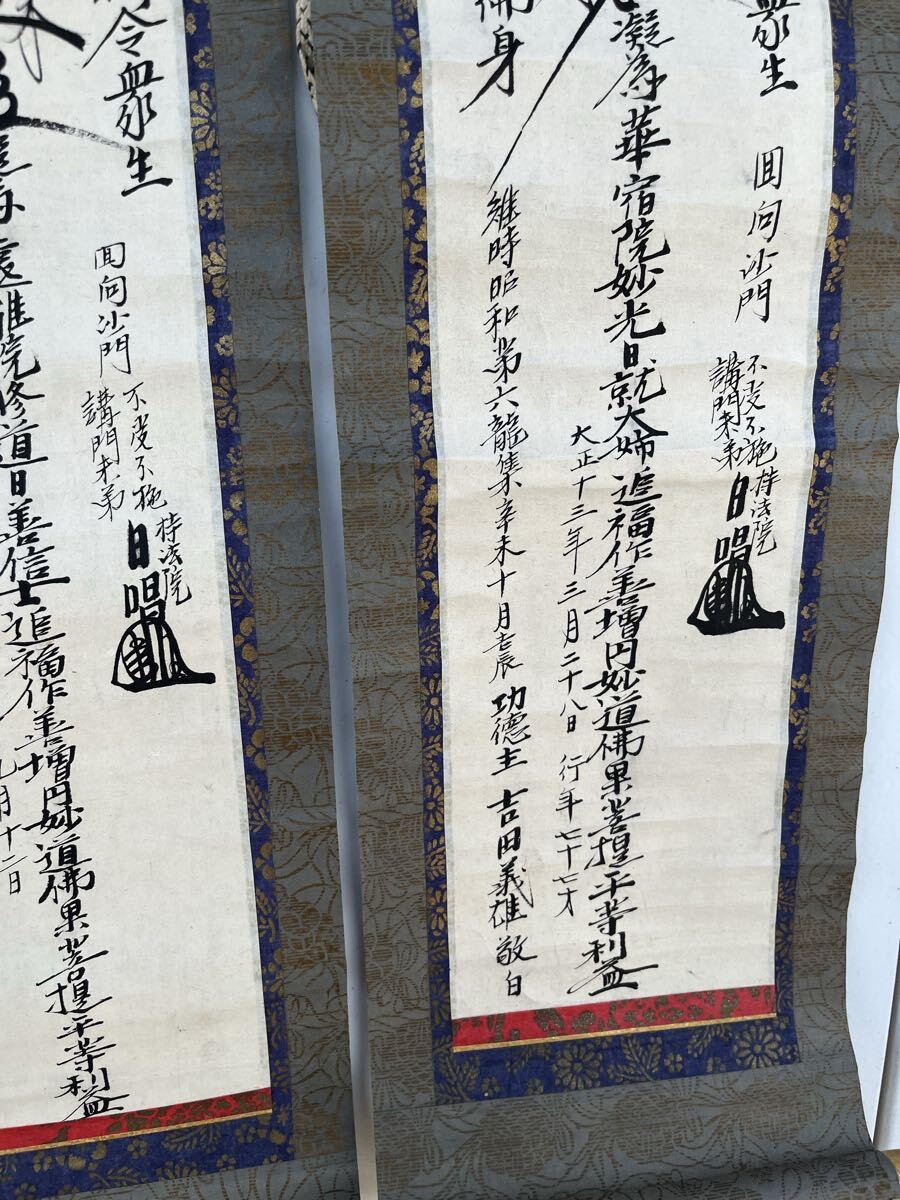 衆生
回向沙門
不受不施
講門末弟
持法院
日唱
凝為華宿院妙光日就大姉追福作善増円妙道佛果菩提平等利益
大正十三年三月二十八日 行年七十七才
佛身
維時昭和第六龍集辛未十月 功徳主 吉田義雄 敬白
令衆生
回向沙門
不受不施
講門末弟
持法院
日唱
院修道日善信士追福作善増円妙道佛果菩提平等利益
月十二日